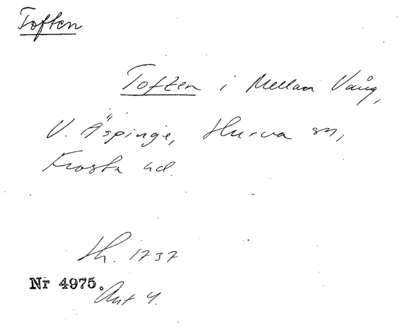 Toften
Toften i Mellan Vång,
V. Äspinge, Hurva sn,
Frosta hd.
Sth. 1737
Nr 4975.
Akt 4.